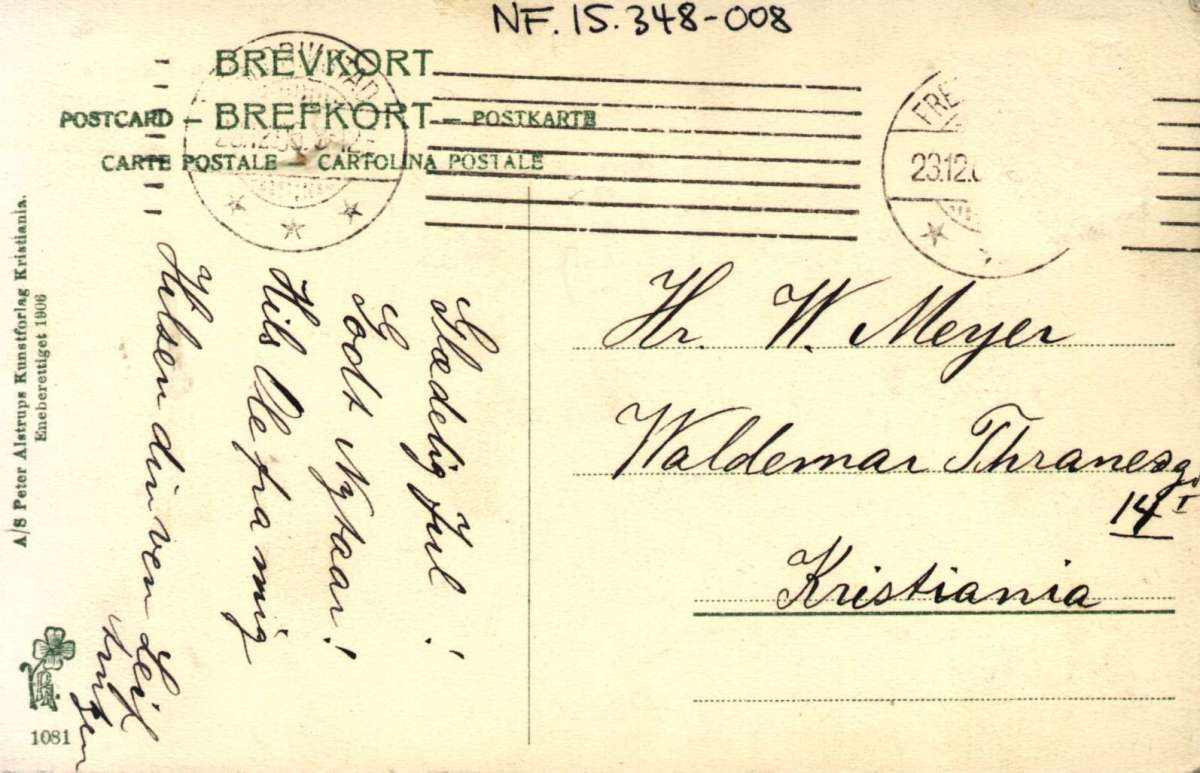 NF.15.348-008
BREVKORT
POSTCARD – BREFKORT – POSTKARTE
CARTE POSTALE – CARTOLINA POSTALE
FRE
23.12.0
A/S Peter Alstrups Kunstforlag Kristiania.
Eneberettiget 1906
Glædelig Jul!
Godt Nytaar!
Hils Ole fra mig
Hilsen din ven Leif
Hr. W. Meyer
Waldemar Thranesg.
14 I
Kristiania
1081